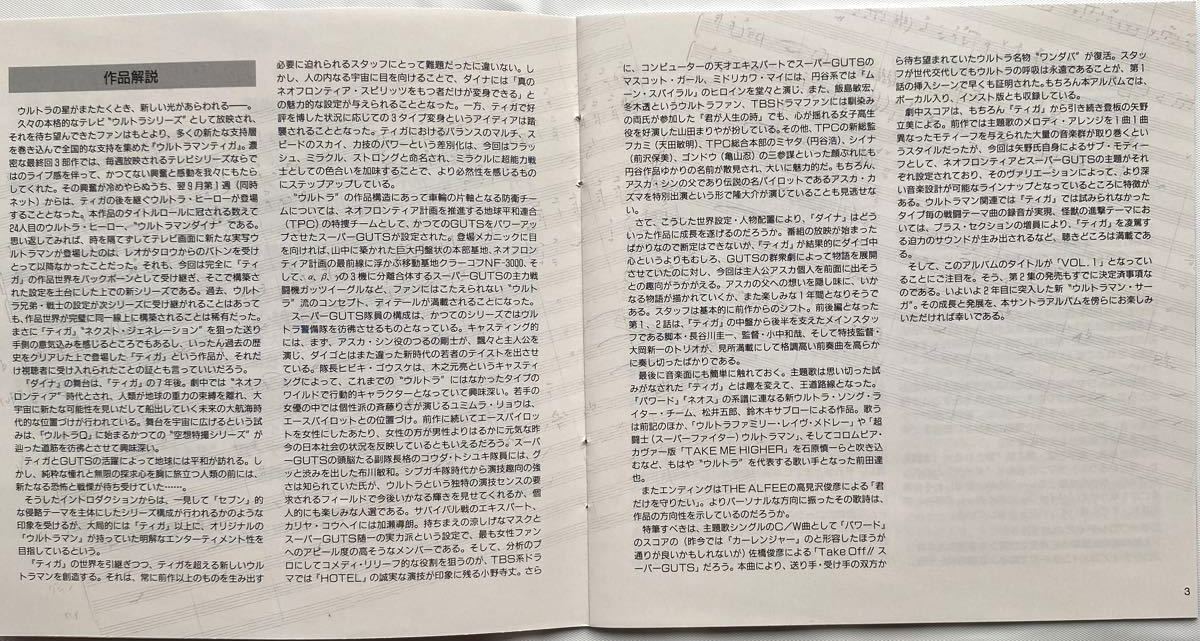 作品解説
ウルトラの星がまたたくとき、新しい光があらわれる──。
久々の本格的なテレビ“ウルトラシリーズ”として放映され、
それを待ち望んできたファンはもとより、多くの新たな支持層
を巻き込んで全国的な支持を集めた『ウルトラマンティガ』。濃
密な最終回3部作では、毎週放映されるテレビシリーズならで
はのライブ感を伴って、かつてない興奮と感動を我々にもたら
してくれた。その興奮が冷めやらぬうち、翌9月第1週（同時
ネット）からは、ティガの後を継ぐウルトラ・ヒーローが登場
することとなった。本作品のタイトルロールに冠される数えて
24人目のウルトラ・ヒーロー、『ウルトラマンダイナ』である。
思い返してみれば、時を隔てずしてテレビ画面に新たな実写ウ
ルトラマンが登場したのは、レオがタロウからのバトンを受け
とって以降なかったことだった。それも、今回は完全に『ティ
ガ』の作品世界をバックボーンとして受け継ぎ、そこで構築さ
れた設定を土台にした上での新シリーズである。過去、ウルト
ラ兄弟・戦士の設定が次シリーズに受け継がれることはあって
も、作品世界が完璧に同一線上に構築されることは稀有だった。
まさに『ティガ』“ネクスト・ジェネレーション”を狙った送り
手側の意気込みを感じるところでもあるし、いったん過去の歴
史をクリアした上で登場した『ティガ』という作品が、それだ
け視聴者に受け入れられたことの証とも言っていいだろう。
『ダイナ』の舞台は、『ティガ』の7年後。劇中では“ネオフ
ロンティア”時代とされ、人類が地球の重力の束縛を離れ、大
宇宙に新たな可能性を見いだして船出していく未来の大航海時
代的な位置づけが行われている。舞台を宇宙に広げるという試
みは、『ウルトラQ』に始まるかつての“空想特撮シリーズ”が
辿った道筋を彷彿とさせて興味深い。
ティガとGUTSの活躍によって地球には平和が訪れる。し
かし、純粋な憧れと無限の探求心を胸に旅立つ人類の前には、
新たなる恐怖と戦慄が待ち受けていた……。
そうしたイントロダクションからは、一見して『セブン』的
な侵略テーマを主体にしたシリーズ構成が行われるかのような
印象を受けるが、大局的には『ティガ』以上に、オリジナルの
『ウルトラマン』が持っていた明解なエンターティメント性を
目指しているという。
『ティガ』の世界を引継ぎつつ、ティガを超える新しいウル
トラマンを創造する。それは、常に前作以上のものを生み出す
必要に迫られるスタッフにとって難題だったに違いない。し
かし、人の内なる宇宙に目を向けることで、ダイナには「真の
ネオフロンティア・スピリッツをもつ者だけが変身できる」と
の魅力的な設定が与えられることとなった。一方、ティガで好
評を博した状況に応じての3タイプ変身というアイディアは踏
襲されることとなった。ティガにおけるバランスのマルチ、ス
ピードのスカイ、力技のパワーという差別化は、今回はフラッ
シュ、ミラクル、ストロングと命名され、ミラクルに超能力戦
士としての色合いを加味することで、より必然性を感じるもの
にステップアップしている。
“ウルトラ”の作品構造にあって車輪の片軸となる防衛チー
ムについては、ネオフロンティア計画を推進する地球平和連合
（TPC）の特捜チームとして、かつてのGUTSをパワーアッ
プさせたスーパーGUTSが設定された。登場メカニックに目
を向ければ、山中に築かれた巨大円盤状の本部基地、ネオフロン
ティア計画の最前線に浮かぶ移動基地クラーコフNF-3000、そ
して、α、β、γの3機に分離合体するスーパーGUTSの主力戦
闘機ガッツイーグルなど、ファンにはこたえられない“ウルト
ラ”流のコンセプト、ディテールが満載されることになった。
スーパーGUTS隊員の構成は、かつてのシリーズではウル
トラ警備隊を彷彿させるものとなっている。キャスティング的
には、まず、アスカ・シン役のつるの剛士が、飄々と主人公を
演じ、ダイゴとはまた違った新時代の若者のテイストを出させ
ている。隊長ヒビキ・ゴウスケは、木之元亮というキャスティ
ングによって、これまでの“ウルトラ”にはなかったタイプの
ワイルドで行動的キャラクターとなっていて興味深い。若手の
女優の中では個性派の斉藤りさが演じるユミムラ・リョウは、
エースパイロットとの位置づけ。前作に続いてエースパイロッ
トを女性にしたあたり、女性の方が男性よりはるかに元気な昨
今の日本社会の状況を反映しているともいえるだろう。スーパ
ーGUTSの頭脳たる副隊長格のコウダ・トシユキ隊員には、グ
ッと渋みを出した布川敏和。シブガキ隊時代から演技趣向の強
さは知られていた氏が、ウルトラという独特の演技センスの要
求されるフィールドで今後いかなる輝きを見せてくれるか、個
人的にも楽しみな人選である。サバイバル戦のエキスパート、
カリヤ・コウヘイには加瀬尊朗。持ちまえの涼しげなマスクと
スーパーGUTS随一の実力派という設定で、最も女性ファン
へのアピール度の高そうなメンバーである。そして、分析のプ
ロにしてコメディ・リリーフ的な役割を狙うのが、TBS系ドラ
マでは『HOTEL』の誠実な演技が印象に残る小野寺丈。さら
に、コンピューターの天才エキスパートでスーパーGUTSの
マスコット・ガール、ミドリカワ・マイには、円谷系では『ム
ーン・スパイラル』のヒロインを堂々と演じ、また、飯島敏宏、
冬木透というウルトラファン、TBSドラマファンには馴染み
の両氏が参加した『君が人生の時』でも、心が揺れる女子高生
役を好演した山田まりやが扮している。その他、TPCの新総監
フカミ（天田敏明）、TPC総合本部のミヤタ（円谷浩）、シイナ
（前沢保美）、ゴンドウ（亀山忍）の三参謀といった顔ぶれにも
円谷作品ゆかりの名前が散見され、大いに魅力的だ。もちろん、
アスカ・シンの父であり伝説の名パイロットであるアスカ・カ
ズマを特別出演という形で隆大介が演じていることも見逃せな
い。
さて、こうした世界設定・人物配置により、『ダイナ』はどう
いった作品に成長を遂げるのだろうか。番組の放映が始まった
ばかりなので断定はできないが、『ティガ』が結果的にダイゴ中
心というよりもむしろ、GUTSの群衆劇によって物語を展開
させていたのに対し、今回は主人公アスカ個人を前面に出そう
との趣向がうかがえる。アスカの父への想いを隠し味に、いか
なる物語が描かれていくか、また楽しみな1年間となりそうで
ある。スタッフは基本的に前作からのシフト。前後編となった
第1、2話は、『ティガ』の中盤から後半を支えたメインスタッ
フである脚本・長谷川圭一、監督・小中和哉、そして特技監督・
大岡新一のトリオが、見所満載にして格調高い前奏曲を高らか
に奏し切ったばかりである。
最後に音楽面にも簡単に触れておく。主題歌は思い切った試
みがなされた『ティガ』とは趣を変えて、王道路線となった。
『パワード』『ネオス』の系譜に連なる新ウルトラ・ソング・ラ
イター・チーム、松井五郎、鈴木キサブローによる作品。歌う
は前記のほか、「ウルトラファミリー・レイヴ・メドレー」や『超
闘士（スーパーファイター）ウルトラマン』、そしてコロムビア・
カヴァー版「TAKE ME HIGHER」を石原慎一らと吹き込
むなど、もはや“ウルトラ”を代表する歌い手となった前田達
也。
またエンディングはTHE ALFEEの高見沢俊彦による「君
だけを守りたい」。よりパーソナルな方向に振ったその歌詩は、
作品の方向性を示しているのだろうか。
特筆すべきは、主題歌シングルのC／W曲として『パワード』
のスコアの（昨今では『カーレンジャー』のと形容したほうが
通りが良いかもしれないが）佐橋俊彦による「Take Off// ス
ーパーGUTS」だろう。本曲により、送り手・受け手の双方か
ら待ち望まれていたウルトラ名物“ワンダバ”が復活。スタッ
フが世代交代してもウルトラの呼吸は永遠であることが、第1
話の挿入シーンで早くも証明された。もちろん本アルバムでは、
ボーカル入り、インスト版とも収録している。
劇中スコアは、もちろん『ティガ』から引き続き登板の矢野
立美による。前作では主題歌のメロディ・アレンジを1曲1曲
異なったモティーフを与えられた大量の音楽群が取り巻くとい
うスタイルだったが、今回は矢野氏自身によるサブ・モティー
フとして、ネオフロンティアとスーパーGUTSの主題がそれ
ぞれ設定されており、そのヴァリエーションによって、より深
い音楽設計が可能なラインナップとなっているところに特徴が
ある。ウルトラマン関連では『ティガ』では試みられなかった
タイプ毎の戦闘テーマ曲の録音が実現、怪獣の進撃テーマにお
いては、ブラス・セクションの増員により、『ティガ』を凌駕す
る迫力のサウンドが生み出されるなど、聴きどころは満載であ
る。
そして、このアルバムのタイトルが「VOL.1」となってい
ることにご注目を。そう、第2集の発売もすでに決定済事項な
のである。いよいよ2年目に突入した新“ウルトラマン・サー
ガ”。その成長と発展を、本サントラアルバムを傍らにお楽しみ
いただければ幸いである。
3